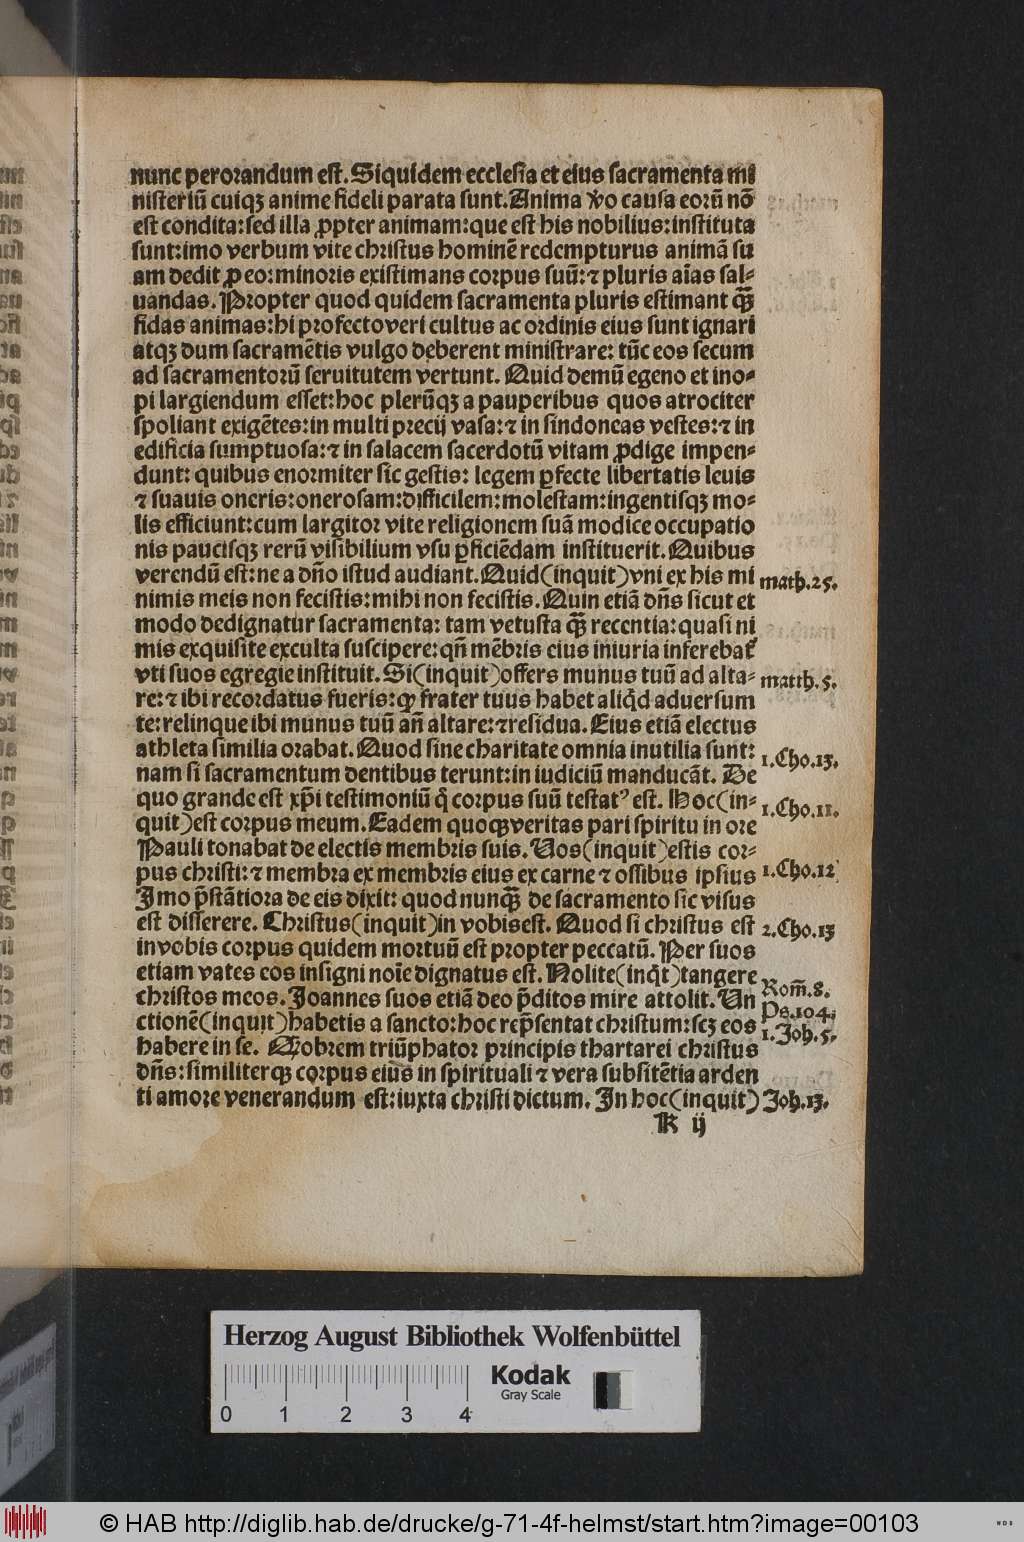 nunc perorandum est. Siquidem ecclesia et eius sacramenta mi
nisteriū cuiqꝫ anime fideli parata sunt. Anima v̄o causa eorū nō
est condita: sed illa ꝓpter animam: que est his nobilius: instituta
sunt: imo verbum vite christus hominē redempturus animā su
am dedit ꝓ eo: minoris existimans corpus suū: ⁊ pluris aīas sal-
uandas. Propter quod quidem sacramenta pluris estimant qꝫ̄
fidas animas: hi profecto veri cultus ac ordinis eius sunt ignari
atqꝫ dum sacramētis vulgo deberent ministrare: tūc eos secum
ad sacramentorū seruitutem vertunt. Quid demū egeno et ino-
pi largiendum esset: hoc plerūqꝫ a pauperibus quos atrociter
spoliant exigētes: in multi precij vasa: ⁊ in sindoneas vestes: ⁊ in
edificia sumptuosa: ⁊ in salacem sacerdotū vitam ꝓdige impen-
dunt: quibus enormiter sic gestis: legem ꝑfecte libertatis leuis
⁊ suauis oneris: onerosam: difficilem: molestam: ingentisqꝫ mo-
lis efficiunt: cum largitor vite religionem suā modice occupatio
nis paucisqꝫ rerū visibilium vsu ꝑficiēdam instituerit. Quibus
verendū est: ne a dn̄o istud audiant. Quid (inquit) vni ex his mi
math. 25.
nimis meis non fecistis: mihi non fecistis. Quin etiā dn̄s sicut et
modo dedignatur sacramenta: tam vetusta qꝫ̄ recentia: quasi ni
mis exquisite exculta suscipere: qn̄ mēbris eius iniuria inferebat᷑
vti suos egregie instituit. Si (inquit) offers munus tuū ad alta-
matth. 5.
re: ⁊ ibi recordatus fueris: ꝙ frater tuus habet aliq̇d aduersum
te: relinque ibi munus tuū an̄ altare: ⁊ residua. Eius etiā electus
athleta similia orabat. Quod sine charitate omnia inutilia sunt:
1. Cho. 13.
nam si sacramentum dentibus terunt: in iudiciū manducāt. De
quo grande est xp̄i testimoniū q̇ corpus suū testatꝰ est. Hoc (in-
1. Cho. 11.
quit) est corpus meum. Eadem quoqꝫ veritas pari spiritu in ore
Pauli tonabat de electis membris suis. Uos (inquit) estis cor-
pus christi: ⁊ membra ex membris eius ex carne ⁊ ossibus ipsius
1. Cho. 12
Imo p̄stātiora de eis dixit: quod nunqꝫ̄ de sacramento sic visus
est disserere. Christus (inquit) in vobis est. Quod si christus est
2. Cho. 13
in vobis corpus quidem mortuū est propter peccatū. Per suos
etiam vates eos insigni noīe dignatus est. Nolite (inq̇t) tangere
Rom̄. 8.
christos meos. Joannes suos etiā deo p̄ditos mire attolit. Un
Ps. 104.
ctionē (inquit) habetis a sancto: hoc rep̄sentat christum: scꝫ eos
1. Joh. 5.
habere in se. Qobrem triūphator principis thartarei christus
dn̄s: similiterqꝫ corpus eius in spirituali ⁊ vera subsitētia arden
ti amore venerandum est: iuxta christi dictum. In hoc (inquit)
Joh. 13.
K ij
Herzog August Bibliothek Wolfenbüttel
Kodak
Gray Scale
0 1 2 3 4
© HAB http://diglib.hab.de/drucke/g-71-4f-helmst/start.htm?image=00103